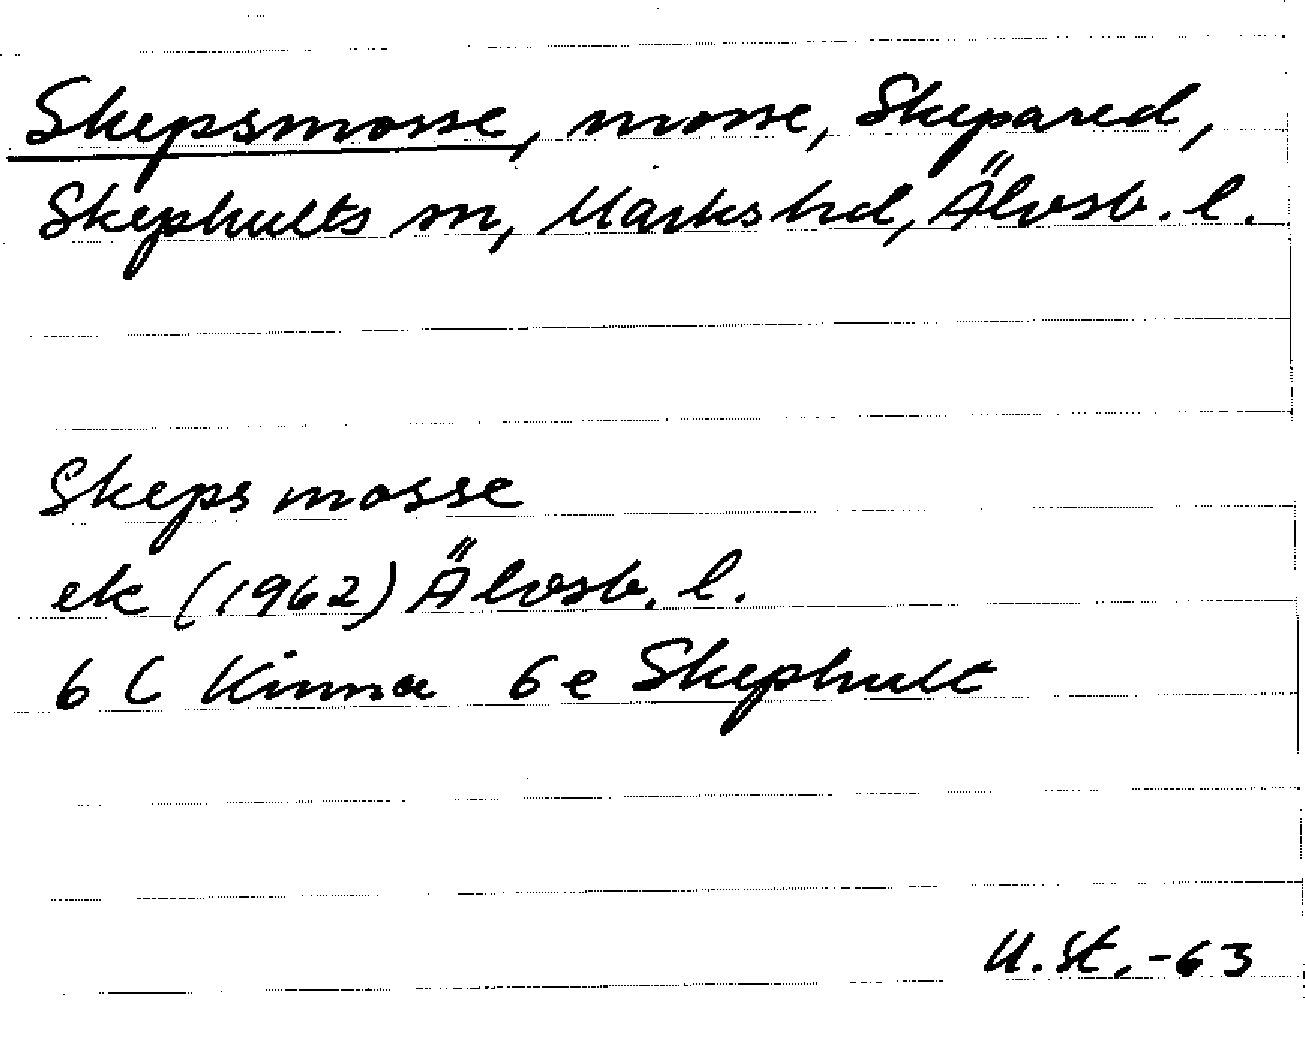 Skepsmosse, mosse, Skepared,
Skephults sn, Marks hd, Älvsb. l.
Skeps mosse
ek (1962) Älvsb. l.
6 C Kinna 6e Skephult
U.St.-63